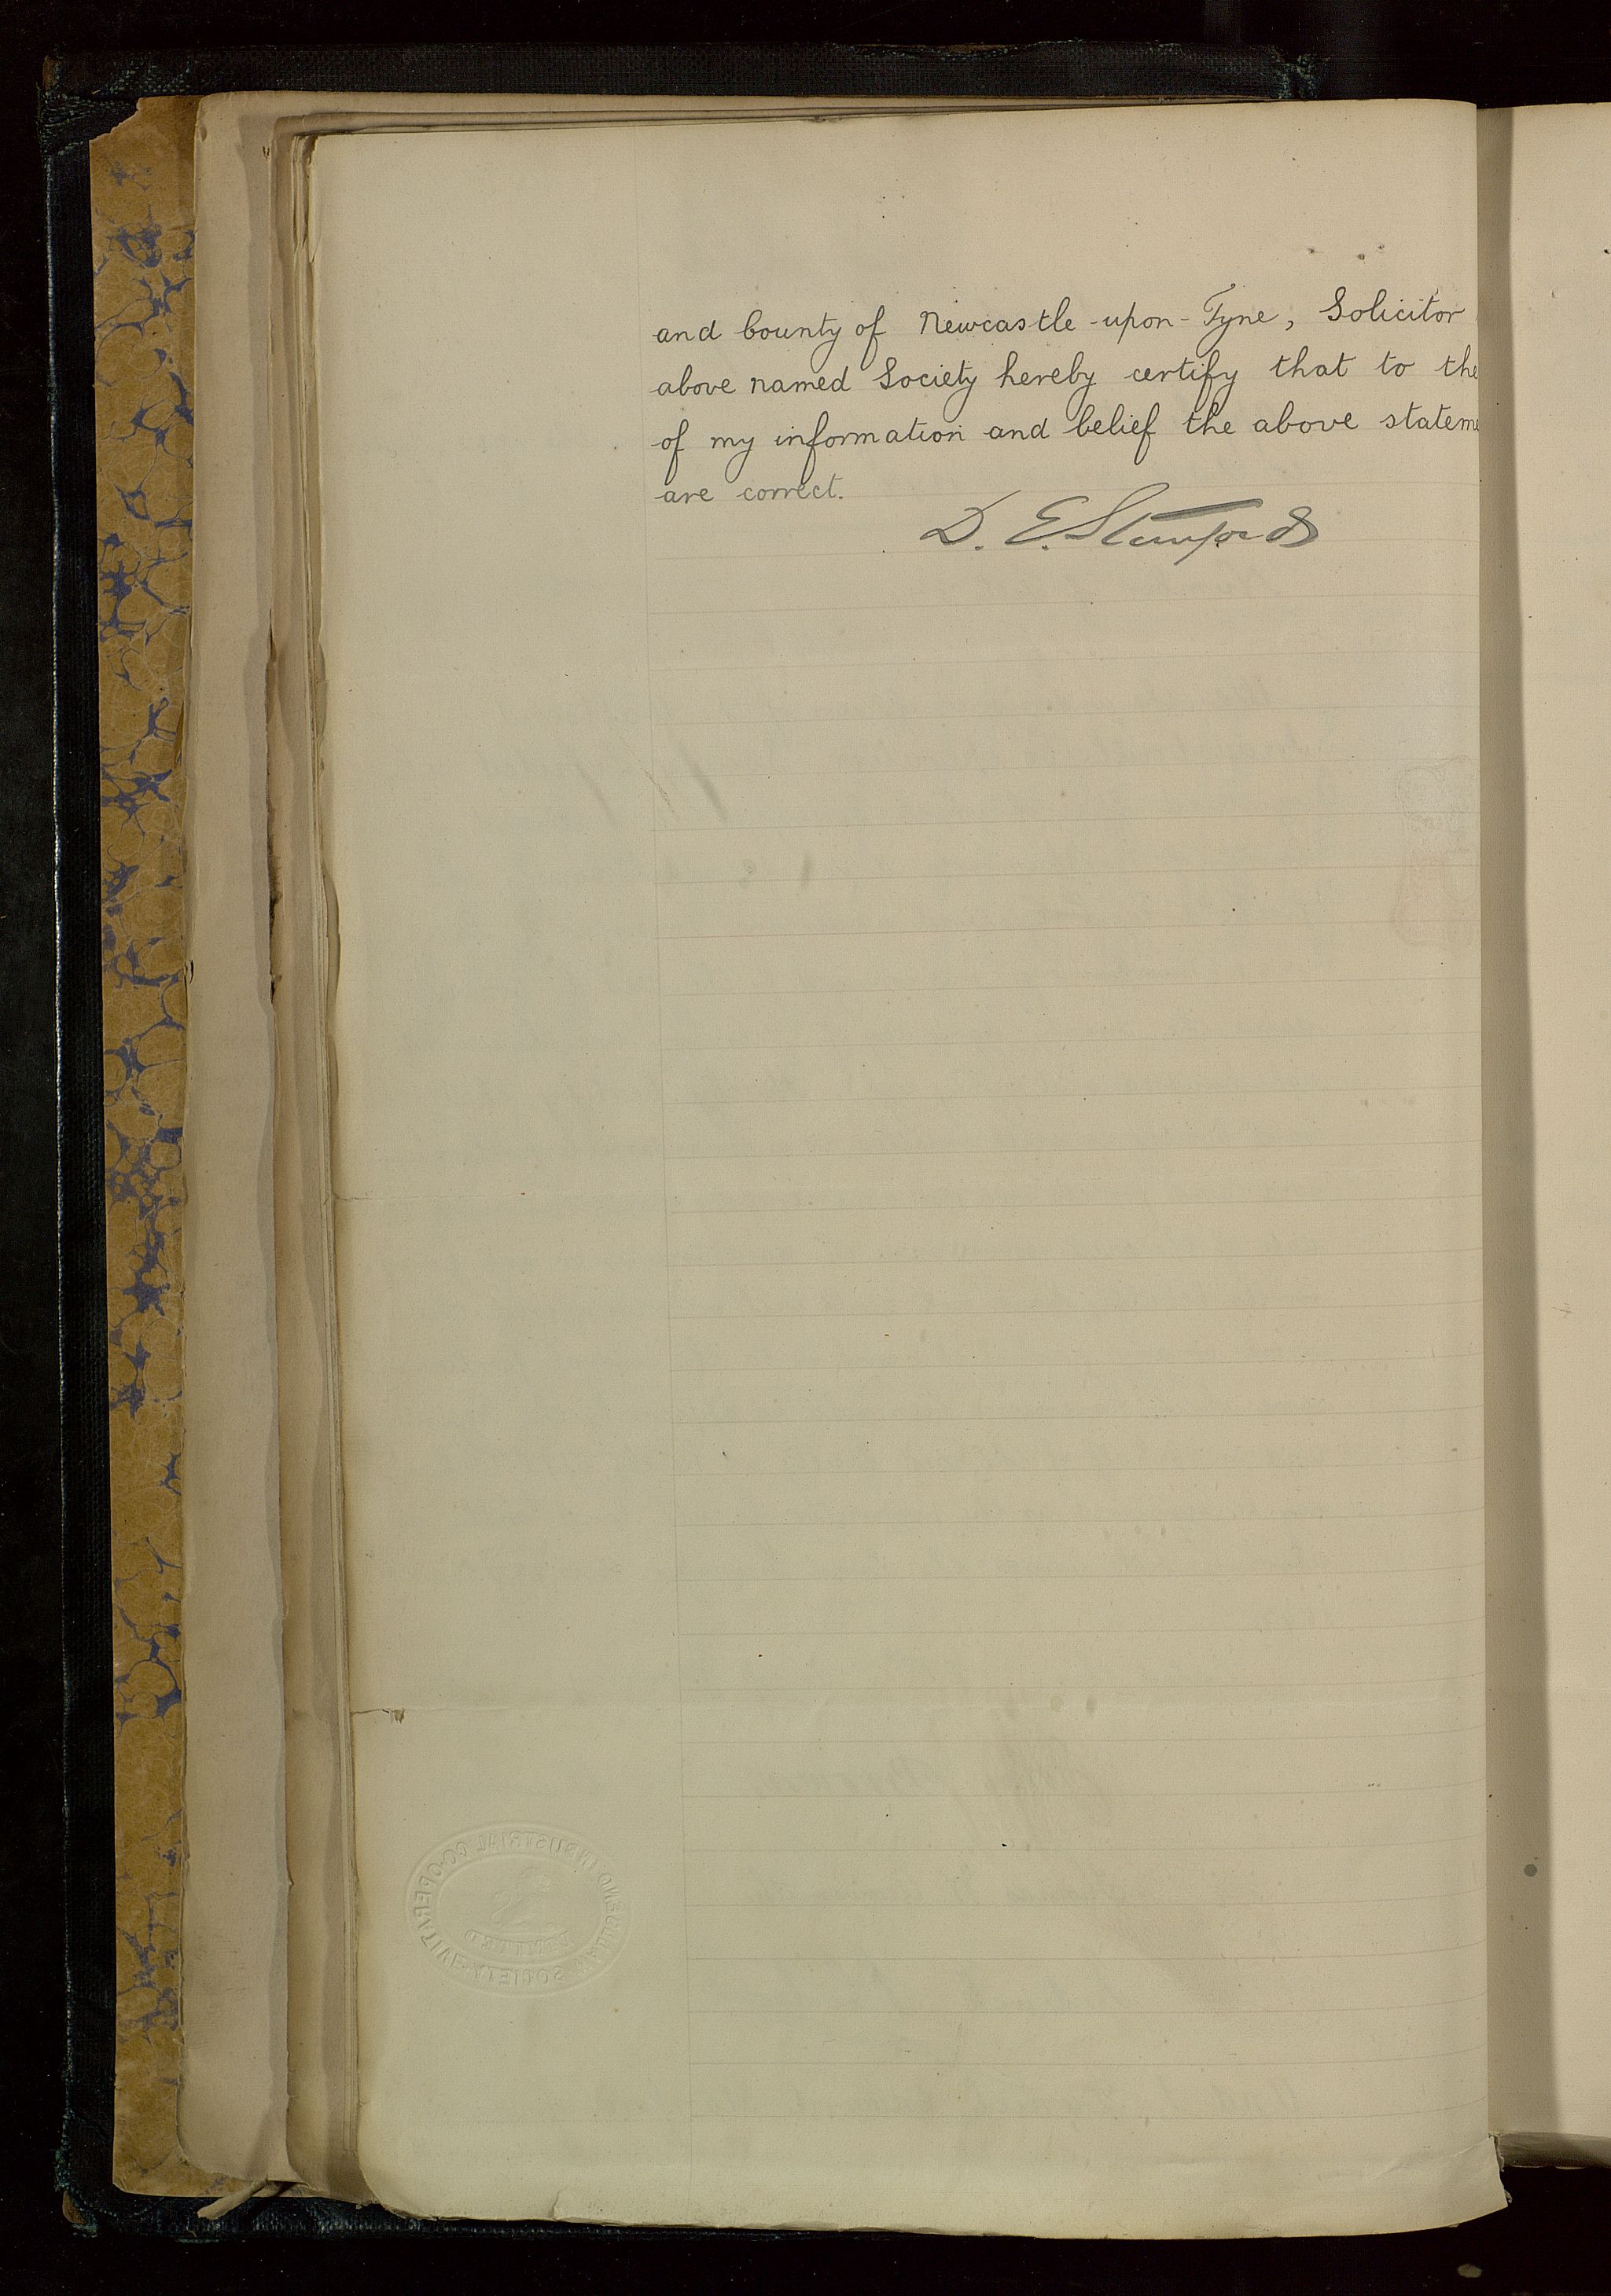 and County of Newcastle-upon-Tyne, Solicitor
above named Society hereby certify that to the
of my information and belief the above stateme
are correct.
D. E. Stanford
INDUSTRIAL CO-OPERATIVE
SOCIETY
LIMITED